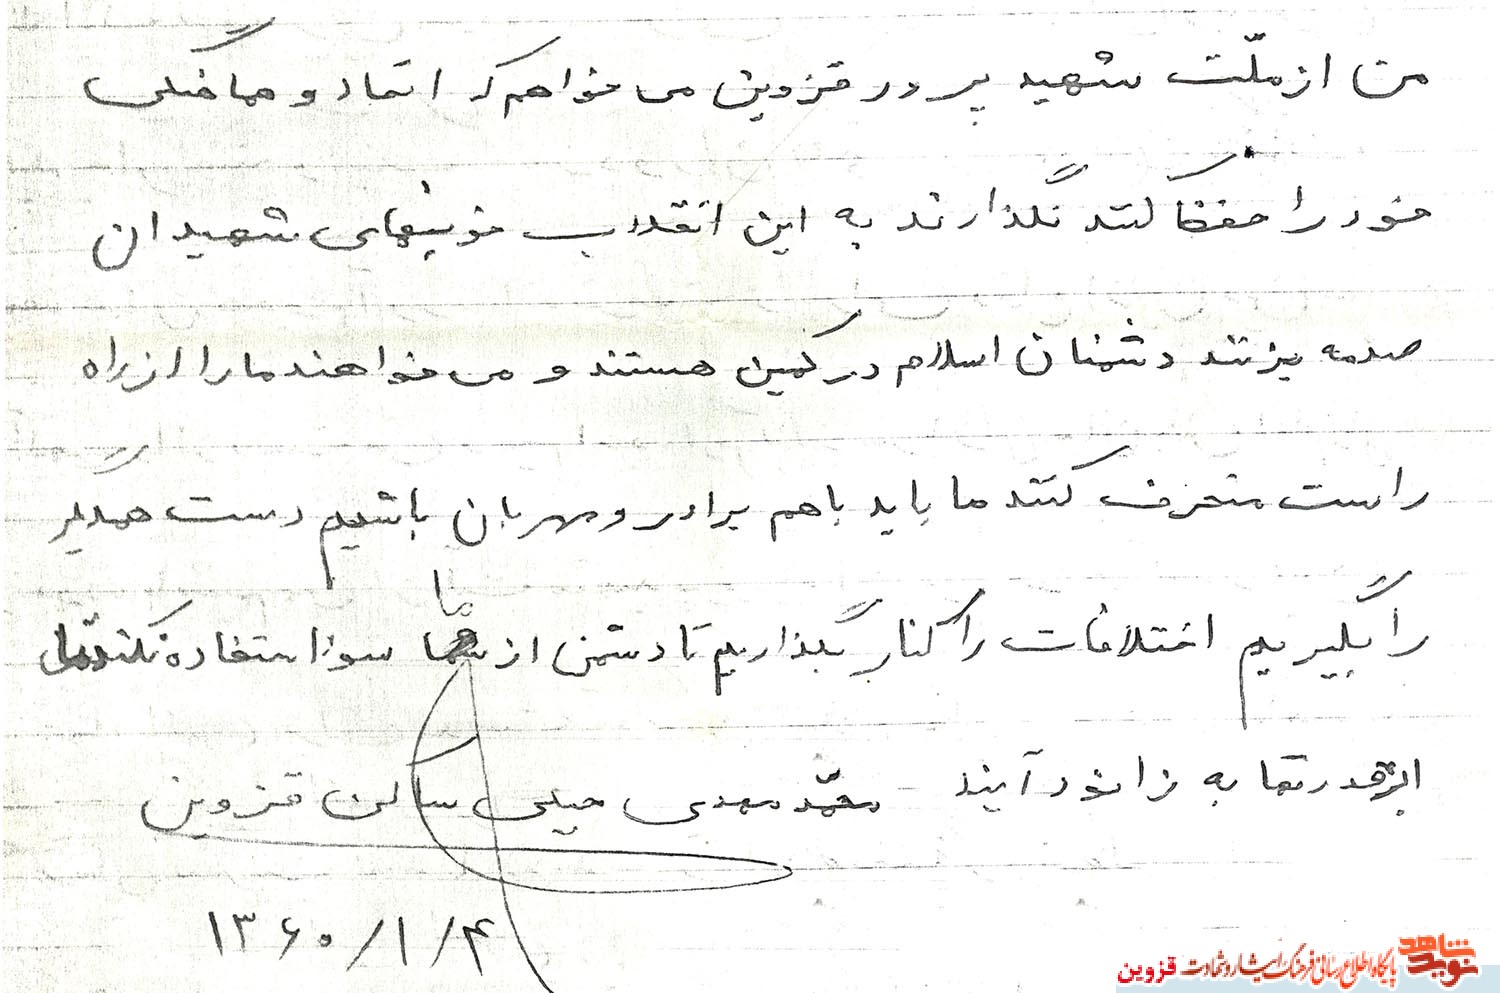 من از ملّت شهید پرور قزوین می خواهم که اتحاد و هماهنگی
خود را حفظ کنند نگذارند به این انقلاب خونبهای شهیدان
صدمه بزنند دشمنان اسلام در کمین هستند و می خواهند ما را از راه
راست منحرف کنند ما باید با هم برادر و مهربان باشیم دست همدیگر
را بگیریم اختلافات را کنار بگذاریم تا دشمن از ما سوء استفاده نکند تمامی
ابرقدرتها به زانو در آیند محمّد مهدی ساکن قزوین
۱۳۶۰/۱/۴
نوید شاهد پایگاه اطلاع رسانی فرهنگ ایثار و شهادت قزوین